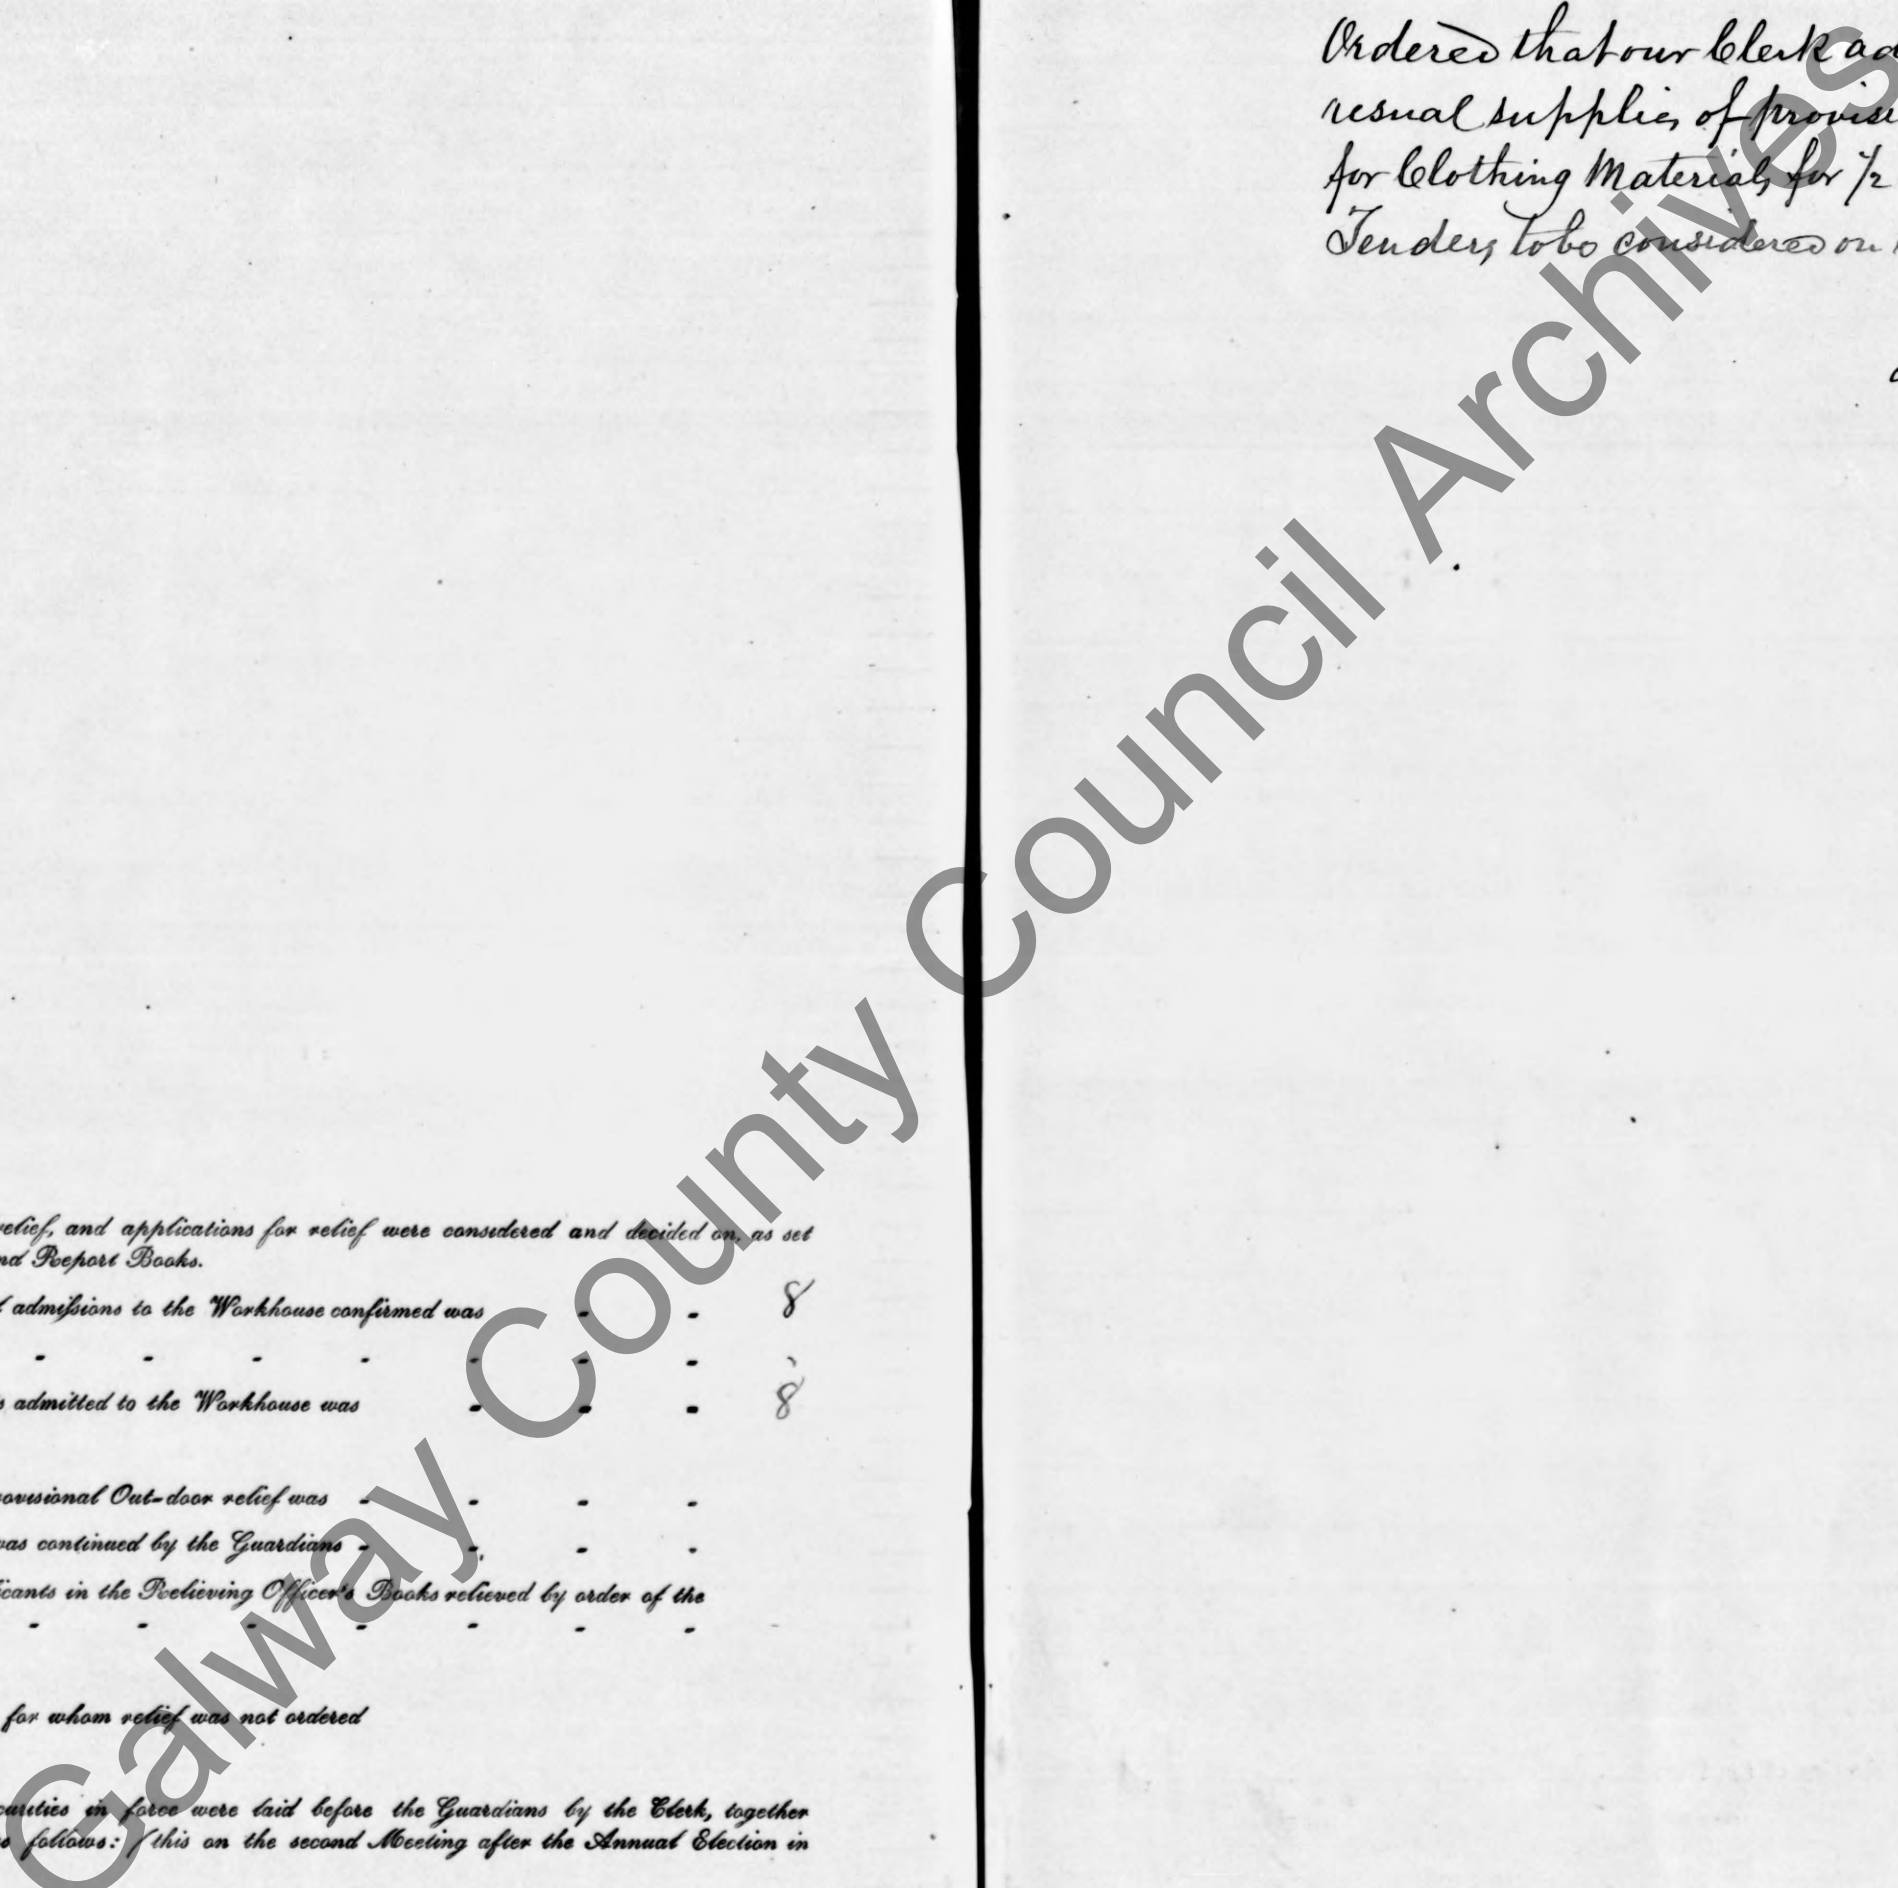 relief, and applications for relief were considered and decided on, as set
nd Report Books.
admissions to the Workhouse confirmed was - - 8
- - - - - - -
s admitted to the Workhouse was - - - 8
rovisional Out-door relief was - - - -
was continued by the Guardians - - - -
icants in the Relieving Officer's Books relieved by order of the
- - - - - - -
for whom relief was not ordered
curities in force were laid before the Guardians by the Clerk, together
s follows: (this on the second Meeting after the Annual Election in
Ordered that our Clerk ad
usual supplies of provisi
for Clothing Materials for 1/2
Tenders to be considered on
Galway County Council Archives